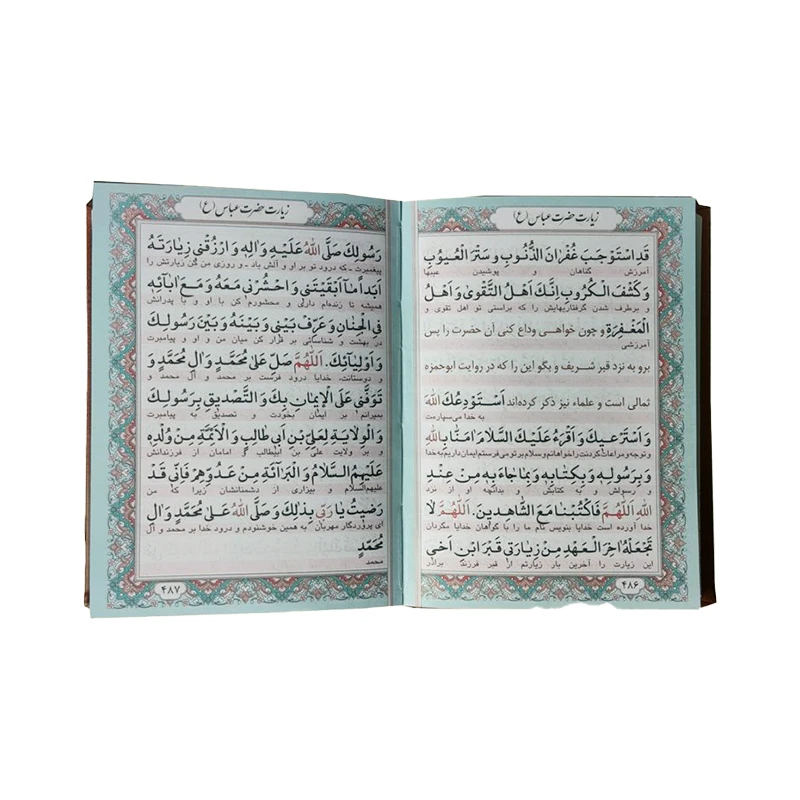 زیارت حضرت عباس (ع)
قَدِاسْتَوْجَبَ غُفْرانَ الذُّنُوبِ وَ سَتْرَ الْعُیُوبِ
آمرزش گناهان و پوشیدن عیبها
وَ کَشْفَ الْکُرُوبِ اِنَّکَ اَهْلُ التَّقْویٰ وَ اَهْلُ
و برطرف شدن گرفتاریهایش را که براستی تو اهل تقوی و
الْمَغْفِرَةِ و چون خواهی وداع کنی آن حضرت را پس
آمرزشی
برو به نزد قبر شریف و بگو این را که در روایت ابوحمزه
ثمالی است و علماء نیز ذکر کرده‌اند اَسْتَوْدِعُکَ اللّٰهَ
به خدا می‌سپارمت
وَ اَسْتَرْعیکَ وَ اَقْرَءُ عَلَیْکَ السَّلامَ اٰمَنّا بِاللّٰهِ
و توجه و مراعات کردنت را خواهانم و سلام بر تو می فرستم ایمان داریم به خدا
وَ بِرَسُولِهِ وَ بِکِتابِهِ وَ بِما جاءَ بِهِ مِنْ عِنْدِ
و رسولش و به کتابش و بدانچه او از نزد
اللّٰهِ اَللّٰهُمَّ فَاکْتُبْنا مَعَ الشّاهِدینَ. اَللّٰهُمَّ لا
خدا آورده است خدایا بنویس نام ما را با گواهان خدایا مگردان
تَجْعَلْهُ اٰخِرَ الْعَهْدِ مِنْ زِیارَتی قَبْرَ ابْنِ اَخی
این زیارت را آخرین بار زیارتم از قبر فرزند برادر
۴۸۶
زیارت حضرت عباس (ع)
رَسُولِکَ صَلَّی اللّٰهُ عَلَیْهِ وَ اٰلِهِ وَ ارْزُقْنی زِیارَتَهُ
پیغمبرت - که درود تو بر او و آلش باد - و روزی من کن زیارتش را
اَبَداً ما اَبْقَیْتَنی وَ احْشُرْنی مَعَهُ وَ مَعَ اٰبائِهِ
همیشه تا زنده‌ام داری و محشورم کن با او و با پدرانش
فِی الْجِنانِ وَ عَرِّفْ بَیْنی وَ بَیْنَهُ وَ بَیْنَ رَسُولِکَ
در بهشت و شناسائی بر قرار کن میان من و او و پیامبرت
وَ اَوْلِیآئِکَ. اَللّٰهُمَّ صَلِّ عَلیٰ مُحَمَّدٍ وَ اٰلِ مُحَمَّدٍ وَ
و دوستانت، خدایا درود فرست بر محمد و آل محمد و
تَوَفَّنی عَلَی الْاِیمانِ بِکَ وَ التَّصْدیقِ بِرَسُولِکَ
بمیرانم بر ایمان بخودت و تصدیق به پیامبرت
وَ الْوِلایَةِ لِعَلِیِّ بْنِ اَبی طالِبٍ وَ الْاَئِمَّةِ مِنْ وُلْدِهِ
و بر ولایت علی بن ابیطالب و امامان از فرزندانش
عَلَیْهِمُ السَّلامُ وَ الْبَرآئَةِ مِنْ عَدُوِّهِمْ فَاِنّی قَدْ
علیهم‌السلام و بیزاری از دشمنانشان زیرا که من
رَضیتُ یا رَبّی بِذٰلِکَ وَ صَلَّی اللّٰهُ عَلیٰ مُحَمَّدٍ وَ اٰلِ
ای پروردگار مهربان به همین خوشنودم و درود خدا بر محمد و آل
مُحَمَّدٍ
محمد
۴۸۷